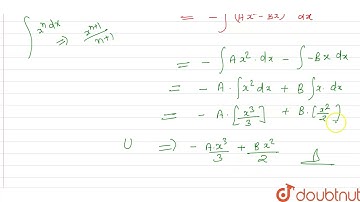 ∫ xⁿ dx ⇒ xⁿ⁺¹/n+1
= - ∫ (Ax² - Bx) dx
= - ∫ A x² · dx - ∫ -Bx dx
= - A · ∫ x² dx + B ∫ x · dx
= - A · [x³/3] + B · [x²/2]
U ⇒ - A x³/3 + B x²/2
doubtnut